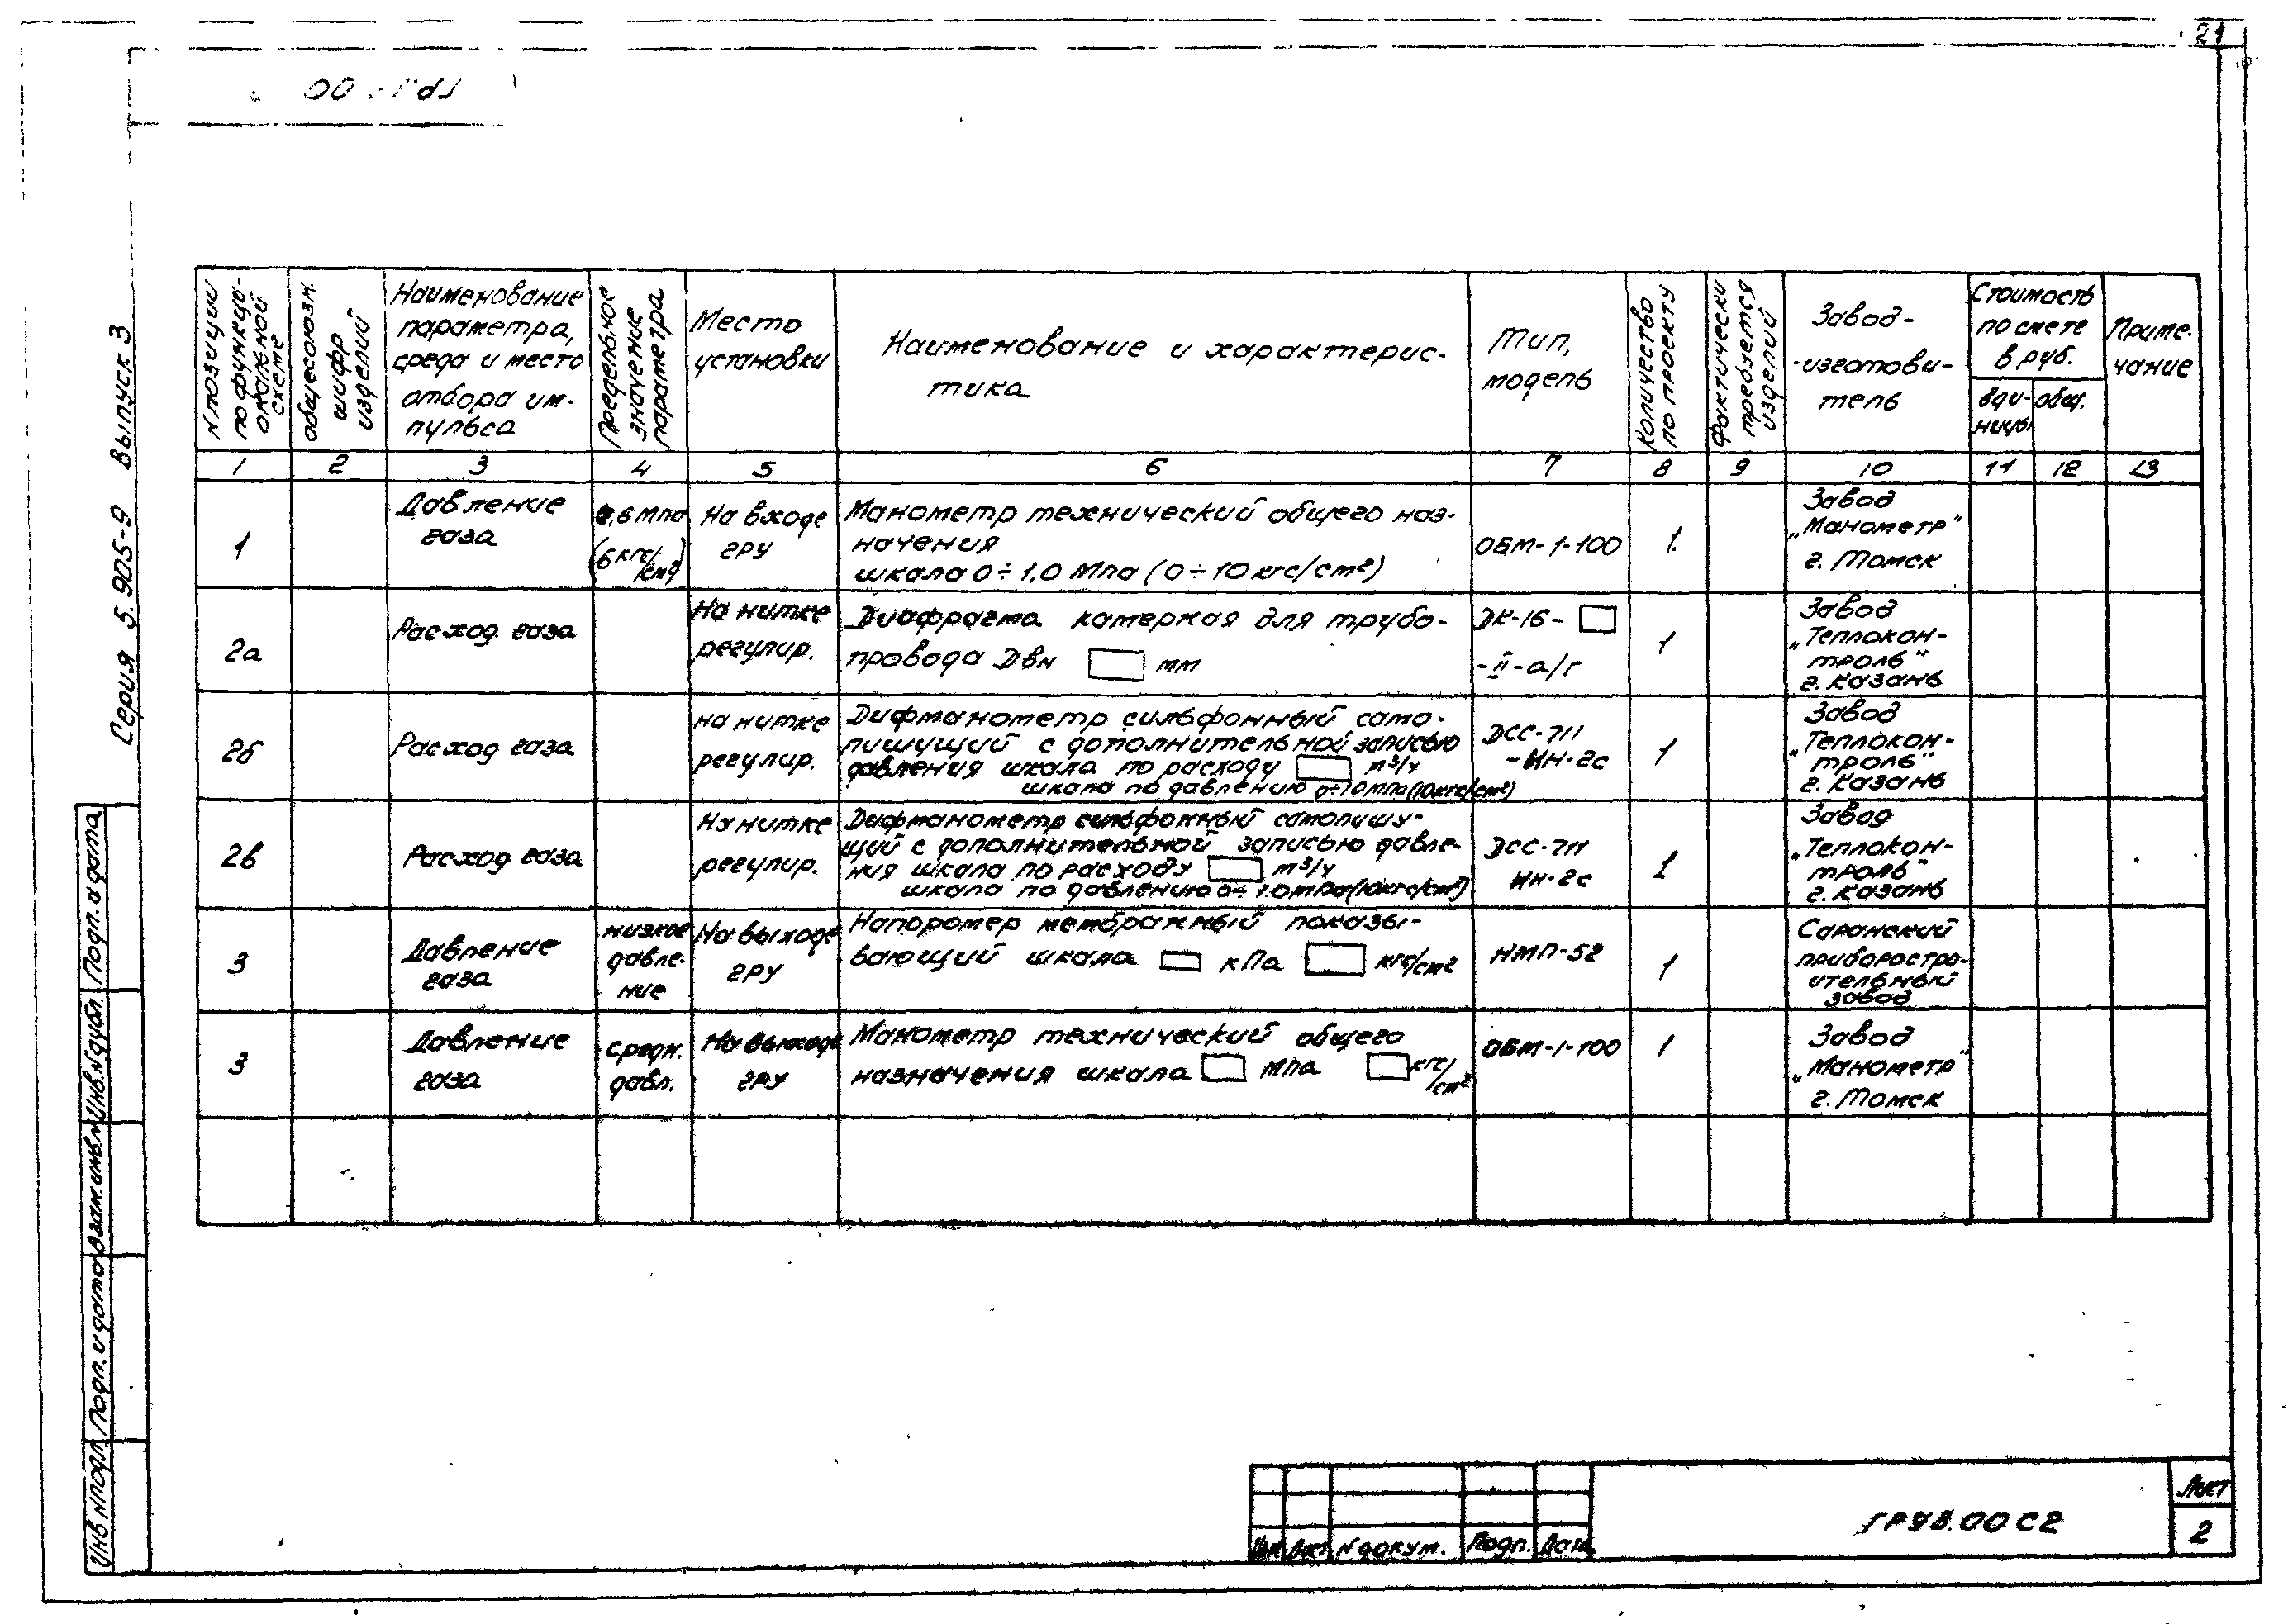 21
Серия 5.905-9 Выпуск 3
N позиции по функцио- ональной схеме
общесоюзн. шифр изделий
Наименование параметра, среда и место отбора им- пульса
Предельное значение параметра
Место установки
Наименование и характерис- тика
Тип, модель
Количество по проекту
Фактически требуется изделий
Завод- -изготови- тель
Стоимость по смете в руб.
Еди- ницы
общ.
Приме- чание
1 2 3 4 5 6 7 8 9 10 11 12 13
1
Давление газа
0,6 МПа (6 кгс/см²)
На входе ГРУ
Манометр технический общего наз-
начения
шкала 0÷1,0 МПа (0÷10 кгс/см²)
ОБМ-1-100
1
Завод
„Манометр"
г. Томск
2а
Расход газа
На нитке регулир.
Диафрагма камерная для трубо-
провода Двн мм
ДК-16-
-II-а/г
1
Завод
„Теплокон-
троль"
г. Казань
2б
Расход газа
на нитке регулир.
Дифманометр сильфонный само-
пишущий с дополнительной записью
давления шкала по расходу м³/ч
шкала по давлению 0÷1,0 МПа (10 кгс/см²)
ДСС-711
-ИН-2с
1
Завод
„Теплокон-
троль"
г. Казань
2в
Расход газа
На нитке регулир.
Дифманометр сильфонный самопишу-
щий с дополнительной записью давле-
ния шкала по расходу м³/ч
шкала по давлению 0÷1.0 МПа (10кгс/см²)
ДСС-711
ИН-2с
1
Завод
„Теплокон-
троль"
г. Казань
3
Давление газа
низкое давле- ние
На выходе ГРУ
Напоромер мембранный показы-
вающий шкала кПа кгс/см²
НМП-52
1
Саранский
приборостро-
ительный
завод
3
Давление газа
средн. давл.
На выходе ГРУ
Манометр технический общего
назначения шкала МПа кгс/см²
ОБМ-1-100
1
Завод
„Манометр"
г. Томск
Инв. N подл.
Подп. и дата
Взам. инв. N
Инв. N дубл.
Подп. и дата
Изм Лист N докум. Подп. Дата
00 С2
Лист
2